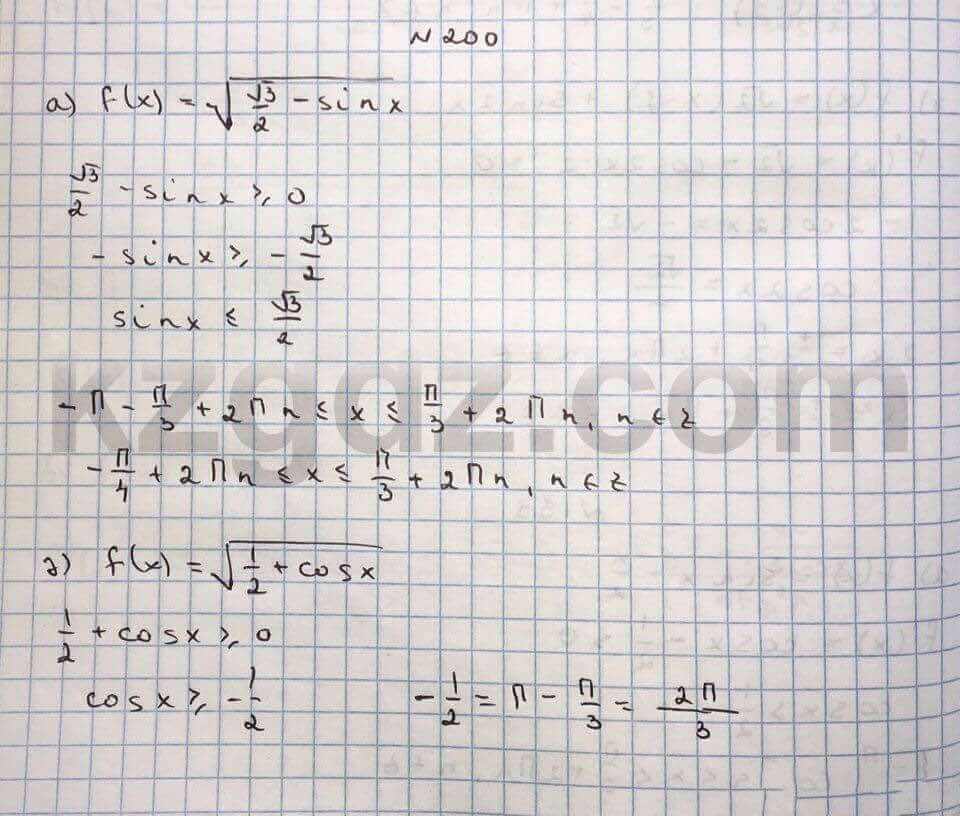 N 200
а) f(x) = √(√3/2 - sin x)
√3/2 - sin x ⩾ 0
- sin x ⩾ - √3/2
sin x ⩽ √3/2
- П - П/3 + 2Пn ⩽ x ⩽ П/3 + 2Пn, n ∈ z
- П/4 + 2Пn ⩽ x ⩽ П/3 + 2Пn, n ∈ z
kzgdz.com
г) f(x) = √(1/2 + cos x)
1/2 + cos x ⩾ 0
cos x ⩾ - 1/2    - 1/2 = П - П/3 = 2П/3